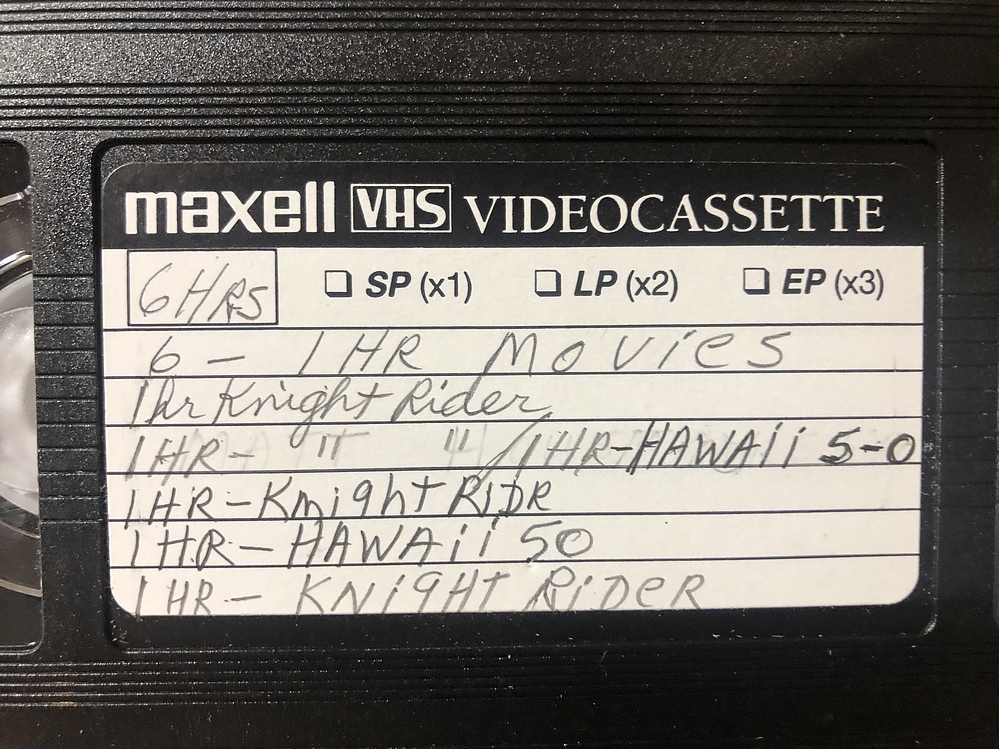 maxell VHS VIDEOCASSETTE
6HRS SP (x1) LP (x2) EP (x3)
6 - 1HR MOVieS
1hr Knight Rider
1HR- " " / 1HR-HAWAii 5-0
1HR-KnighT RIDR
1HR-HAWAii 50
1HR- KNigHT RiDeR